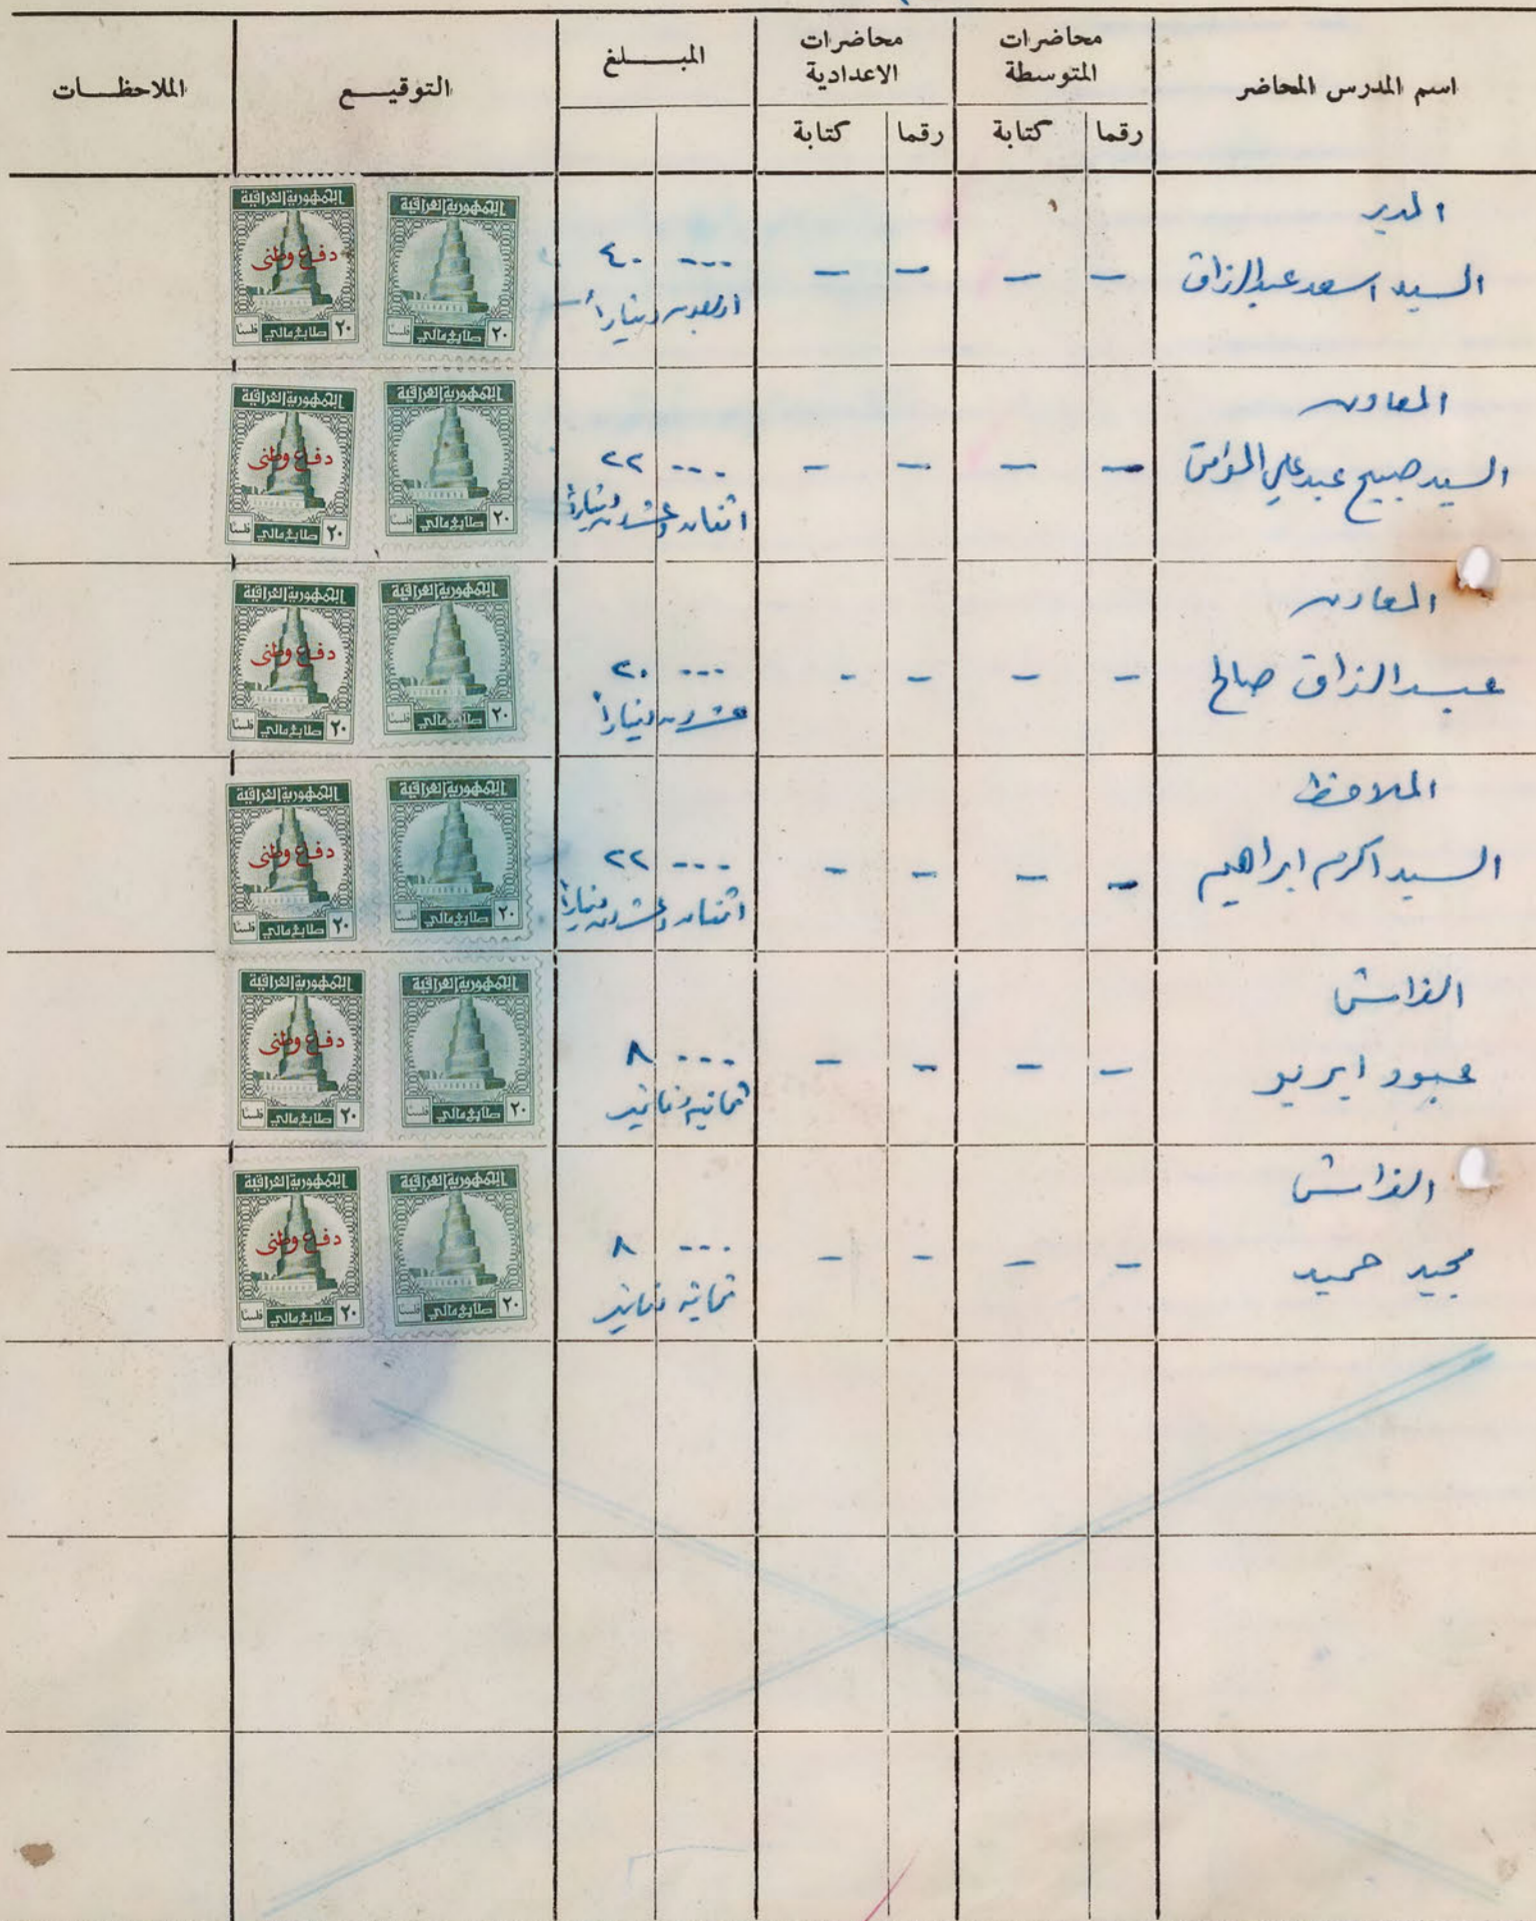 اسم المدرس المحاضر
محاضرات المتوسطة
محاضرات الاعدادية
المبلغ
التوقيع
الملاحظات
رقما
كتابة
رقما
كتابة
المدير
السيد اسعد عبدالرزاق
- - - - --- ٤٠
اربعون ديناراً
الجمهورية العراقية
٢٠ طابع مالي فلسًا
الجمهورية العراقية
دفاع وطني
٢٠ طابع مالي فلسًا
المعاون
السيد صبيح عبد علي
- - - - --- ٢٢
اثنان وعشرون ديناراً
الجمهورية العراقية
٢٠ طابع مالي فلسًا
الجمهورية العراقية
دفاع وطني
٢٠ طابع مالي فلسًا
المعاون
عبد الرزاق صالح
- - - - --- ٢٠
عشرون ديناراً
الجمهورية العراقية
٢٠ طابع مالي فلسًا
الجمهورية العراقية
دفاع وطني
٢٠ طابع مالي فلسًا
الملاحظ
السيد اكرم ابراهيم
- - - - --- ٢٢
اثنان وعشرون ديناراً
الجمهورية العراقية
٢٠ طابع مالي فلسًا
الجمهورية العراقية
دفاع وطني
٢٠ طابع مالي فلسًا
الفراش
عبود
- - - - --- ٨
ثمانية دنانير
الجمهورية العراقية
٢٠ طابع مالي فلسًا
الجمهورية العراقية
دفاع وطني
٢٠ طابع مالي فلسًا
الفراش
مجيد حميد
- - - - --- ٨
ثمانية دنانير
الجمهورية العراقية
٢٠ طابع مالي فلسًا
الجمهورية العراقية
دفاع وطني
٢٠ طابع مالي فلسًا